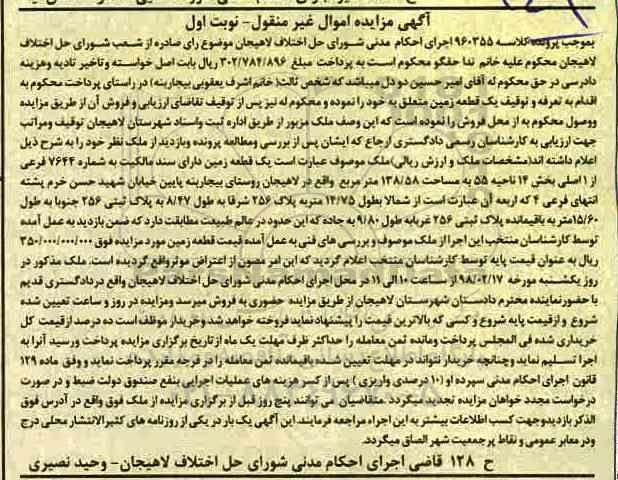 آگهی مزایده اموال غیر منقول- نوبت اول
بموجب پرونده کلاسه ۹۶۰۳۵۵ اجرای احکام مدنی شورای حل اختلاف لاهیجان موضوع رای صادره از شعب شورای حل اختلاف
لاهیجان محکوم علیه خانم ندا حقگو محکوم است به پرداخت مبلغ ۳۰۲/۷۸۴/۸۹۶ ریال بابت اصل خواسته و تاخیر تادیه وهزینه
دادرسی در حق محکوم له آقای امیر حسین دو دل میباشد که شخص ثالث( خانم اشرف یعقوبی بیجاربنه) در راستای پرداخت محکوم به
اقدام به تعرفه و توقیف یک قطعه زمین متعلق به خود را نموده و محکوم له نیز پس از توقیف تقاضای ارزیابی و فروش آن از طریق مزایده
ووصول محکوم به از محل فروش را نموده است که این وصف ملک مزبور از طریق اداره ثبت واسناد شهرستان لاهیجان توقیف ومراتب
جهت ارزیابی به کارشناسان رسمی دادگستری ارجاع که ایشان پس از بررسی ومطالعه پرونده وبازدید از ملک نظر خود را به شرح ذیل
اعلام داشته اند(مشخصات ملک و ارزش ریالی)ملک موصوف عبارت است یک قطعه زمین دارای سند مالکیت به شماره ۷۶۴۴ فرعی
از ۱ اصلی بخش ۱۴ ناحیه ۵۵ به مساحت ۱۳۸/۵۸ متر مربع واقع در لاهیجان روستای بیجاربنه پایین خیابان شهید حسن خرم پشته
انتهای فرعی ۴ که اربعه آن عبارت است از شمالا بطول ۱۴/۷۵ متر به پلاک ۲۵۶ شرقا به طول ۸/۴۷ به پلاک ثبتی ۲۵۶ جنوبا به طول
۱۵/۶۰متر به باقیمانده پلاک ثبتی ۲۵۶ غربا به طول ۹/۸۰ به جاده که این حدود در عالم طبیعت مطابقت دارد که ضمن بازدید به عمل آمده
توسط کارشناسان منتخب این اجرا از ملک موصوف و بررسی های فنی به عمل آمده قیمت قطعه زمین مورد مزایده فوق ۳۵۰/۰۰۰/۰۰۰
ریال به عنوان قیمت پایه توسط کارشناسان منتخب اعلام گردید که این امر مصون از اعتراض موثر واقع گردیده است. ملک مذکور در
روز یکشنبه مورخه ۹۸/۰۲/۱۷ از ساعت ۱۰ الی ۱۱ در محل اجرای احکام مدنی شورای حل اختلاف لاهیجان واقع در دادگستری قدیم
با حضور نماینده محترم دادستان شهرستان لاهیجان از طریق مزایده حضوری به فروش میرسد ومزایده در روز و ساعت تعیین شده
شروع و از قیمت پایه شروع و کسی که بالاترین قیمت را پیشنهاد نماید فروخته خواهد شد وخریدار موظف است ده درصد از قیمت کل
خریداری شده فی المجلس پرداخت ومانده ثمن معامله را حداکثر ظرف مهلت یک ماه از تاریخ برگزاری مزایده پرداخت ورسید آنرا به
اجرا تسلیم نماید وچنانچه خریدار نتواند در مهلت تعیین شده باقیمانده ثمن معامله را در فرجه مقرر پرداخت نماید و وفق ماده ۱۲۹
قانون اجرای احکام مدنی سپرده او (۱۰ درصدی واریزی ) پس از کسر هزینه های عملیات اجرایی بنفع صندوق دولت ضبط و در صورت
درخواست مجدد خواهان مزایده تجدید میگردد .متقاضیان می توانند پنج روز قبل از برگزاری مزایده از ملک فوق واقع در آدرس فوق
الذکر بازدید وجهت کسب اطلاعات بیشتر به این اجراء مراجعه فرمایند.این آگهی یک بار در یکی از روزنامه های کثیرالانتشار محلی درج
ودر معابر عمومی و نقاط پرجمعیت شهر الصاق میگردد.
ح ۱۲۸ قاضی اجرای احکام مدنی شورای حل اختلاف لاهیجان- وحید نصیری